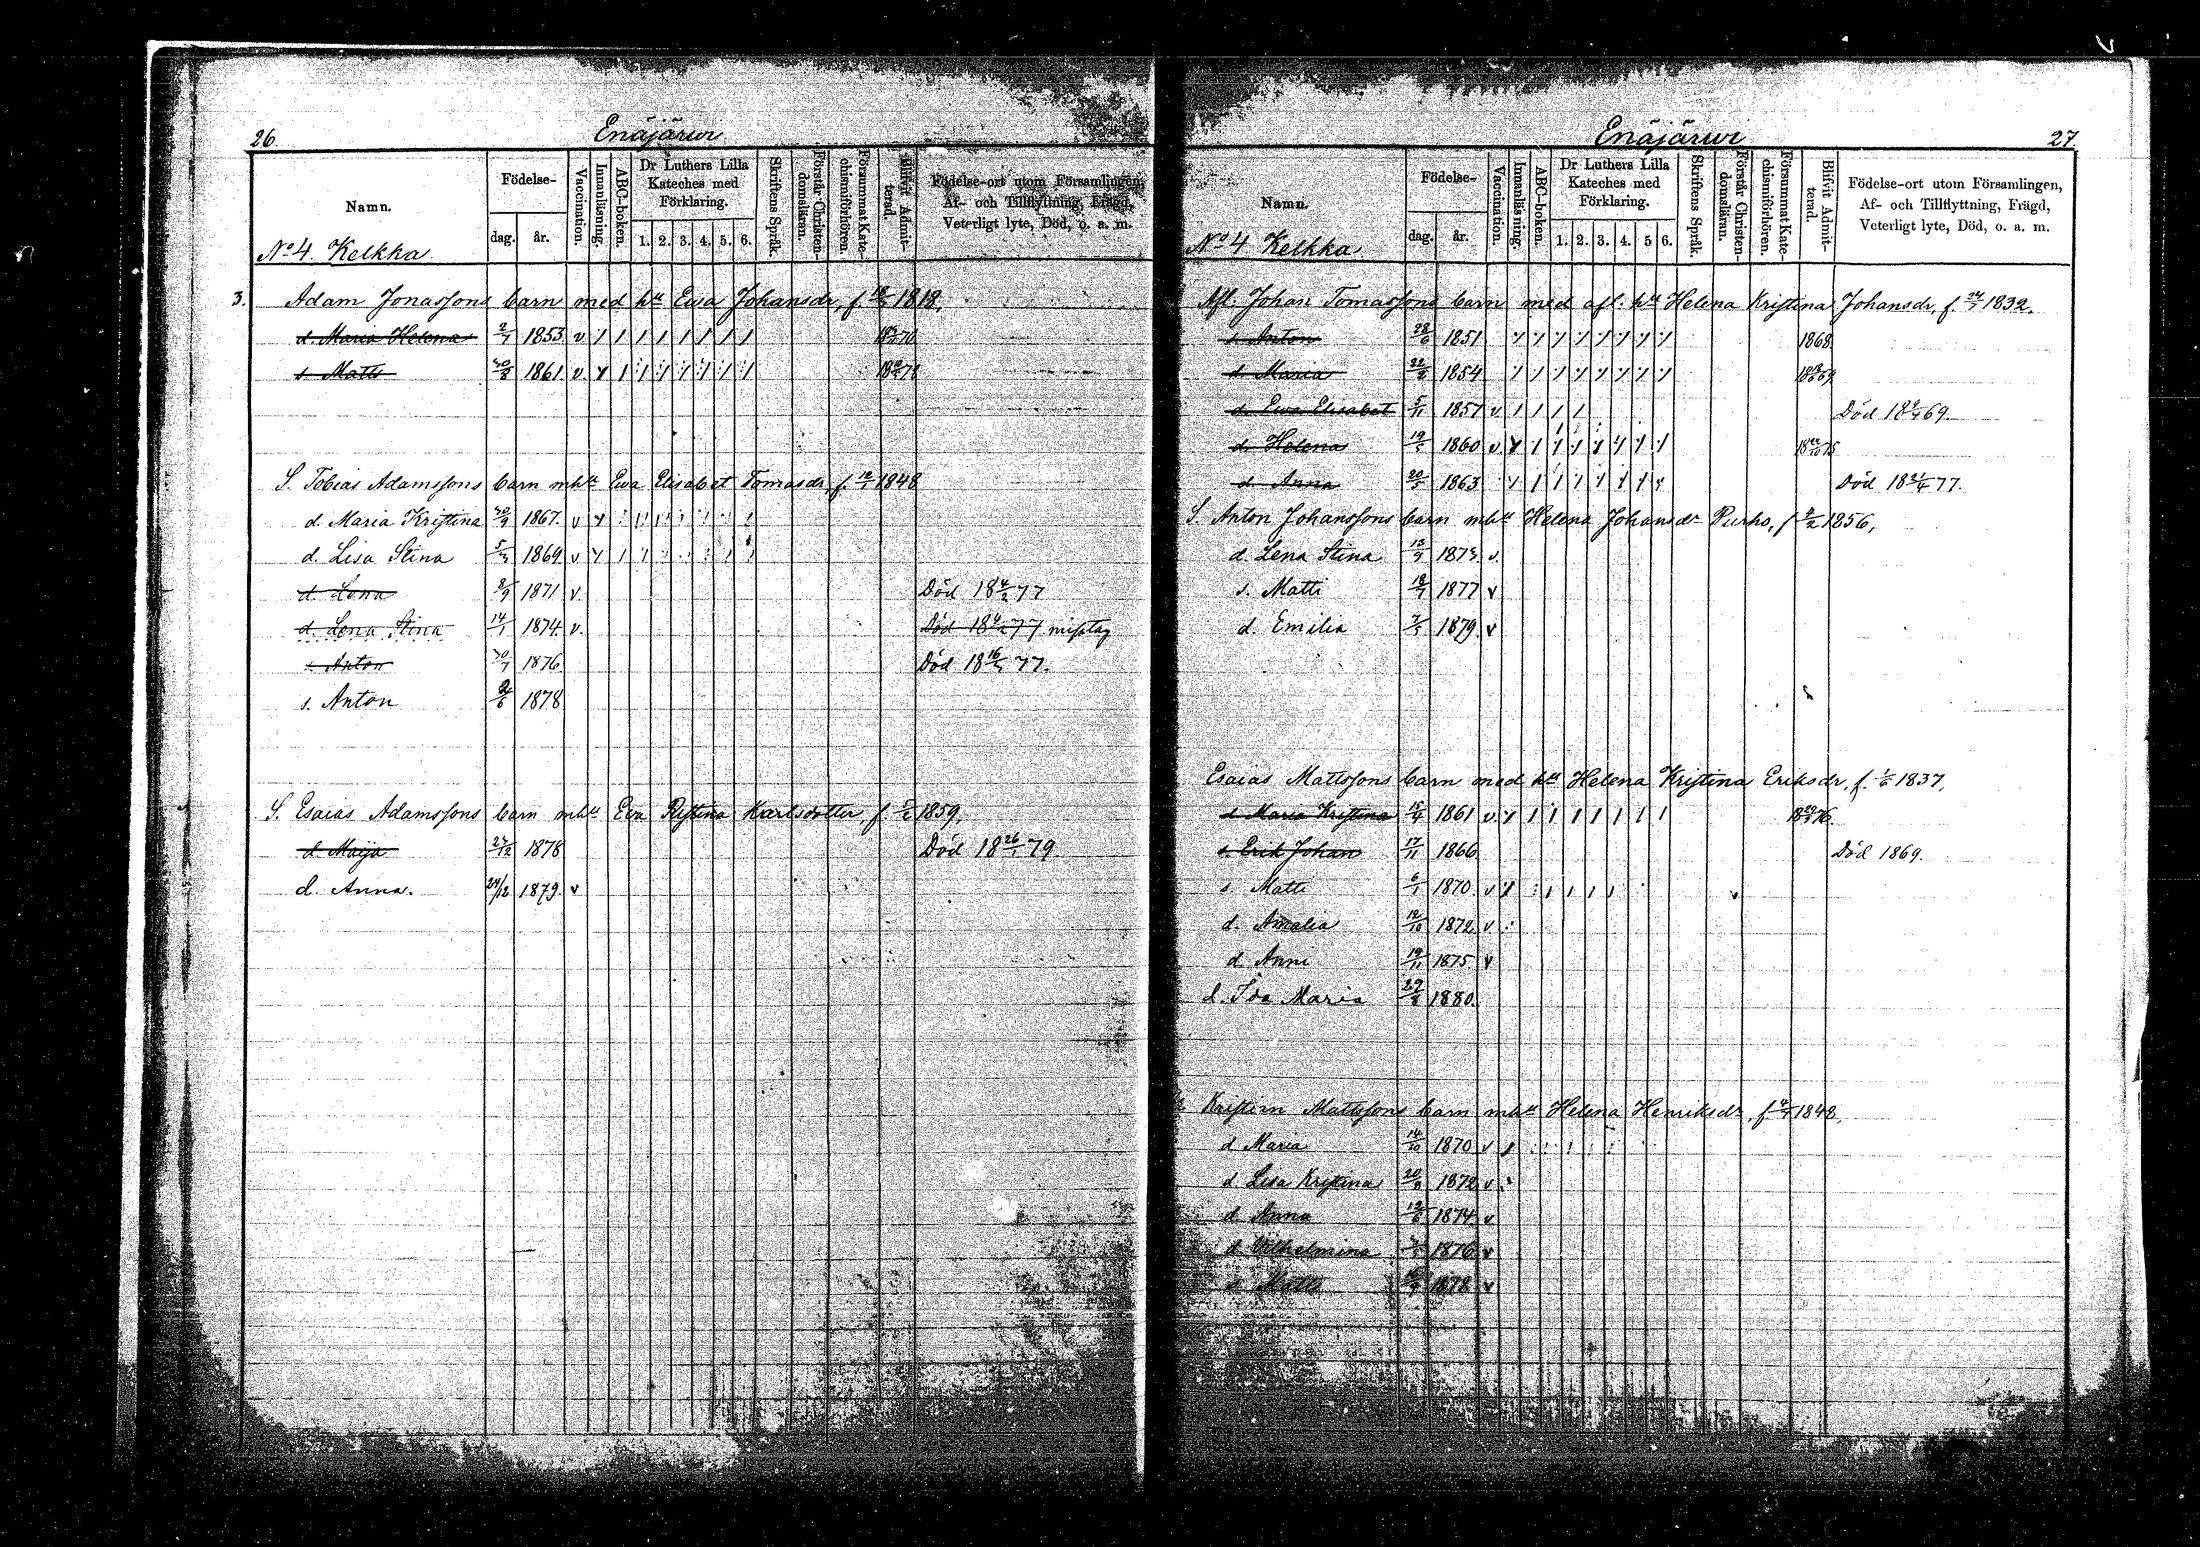 26. Enäjärwi
Namn. Födelse- dag. år. Vaccination. Innanläsning. ABC-boken. Dr Luthers Lilla Kateches med Förklaring. 1. 2. 3. 4. 5. 6. Skriftens Språk. Förstår Christendomsläran. Försummat Katechismiförhören. Blifvit Admitterad. Födelse-ort utom Församlingen, Af- och Tillflyttning, Frägd, Veterligt lyte, Död, o. a. m.
No 4 Kelkka
3. Adam Jonassons barn med hu Ewa Johansdr, f. 1818.
d. Maria Helena 1853 v
s. Matts 30/8 1861 v
S. Tobias Adamssons barn m hu Ewa Elisabet Tomasdr, f. 1848
d. Maria Kristina 30/9 1867 v
d. Lisa Stina 5/3 1869 v
d. Lena 8/9 1871 v. Död 18 4/2 77
d. Lena Stina 14/1 1874 v. Död 18 4/2 77 misstag
s. Anton 30/1 1876 Död 18 16/5 77.
s. Anton 1878
S. Esaias Adamssons barn m hu Eva Ristina Karlsdotter f. 1859,
d. Maija 27/12 1878 Död 18 26/1 79
d. Anna. 24/12 1879 v
Enäjärwi 27.
Namn. Födelse- dag. år. Vaccination. Innanläsning. ABC-boken. Dr Luthers Lilla Kateches med Förklaring. 1. 2. 3. 4. 5 6. Skriftens Språk. Förstår Christendomsläran. Försummat Katechismiförhören. Blifvit Admitterad. Födelse-ort utom Församlingen, Af- och Tillflyttning, Frägd, Veterligt lyte, Död, o. a. m.
No 4 Kelkka
Afl. Johan Tomassons barn med afl. hu Helena Kristina Johansdr, f. 1832.
s. Anton 28/6 1851 1868
d. Maria 1854
d. Ewa Elisabet 5/11 1857 v Död 69.
d. Helena 1860 v.
d. Anna 20/5 1863 Död 77.
S. Anton Johanssons barn m hu Helena Johansdr Purho, f 1856,
d. Lena Stina 13/9 1873 v.
s. Matti 1877 v
d. Emilia 1879 v
Esaias Mattssons barn med hu Helena Kristina Eriksdr, f. 1837,
d. Maria Kristina 15/4 1861 v.
s. Erik Johan 17/11 1866 Död 1869.
s Matti 6/1 1870 v
d. Amalia 12/10 1872 v
d. Anni 19/11 1875 v
d. Ida Maria 1880.
Kristian Mattssons barn m hu Helena Henriksdr, f. 1848,
d Maria 14/10 1870 v
d Lisa Kristina 20/8 1872 v
d. Anna 1874 v
d Vilhelmina 1876 v
s Matts 1878 v